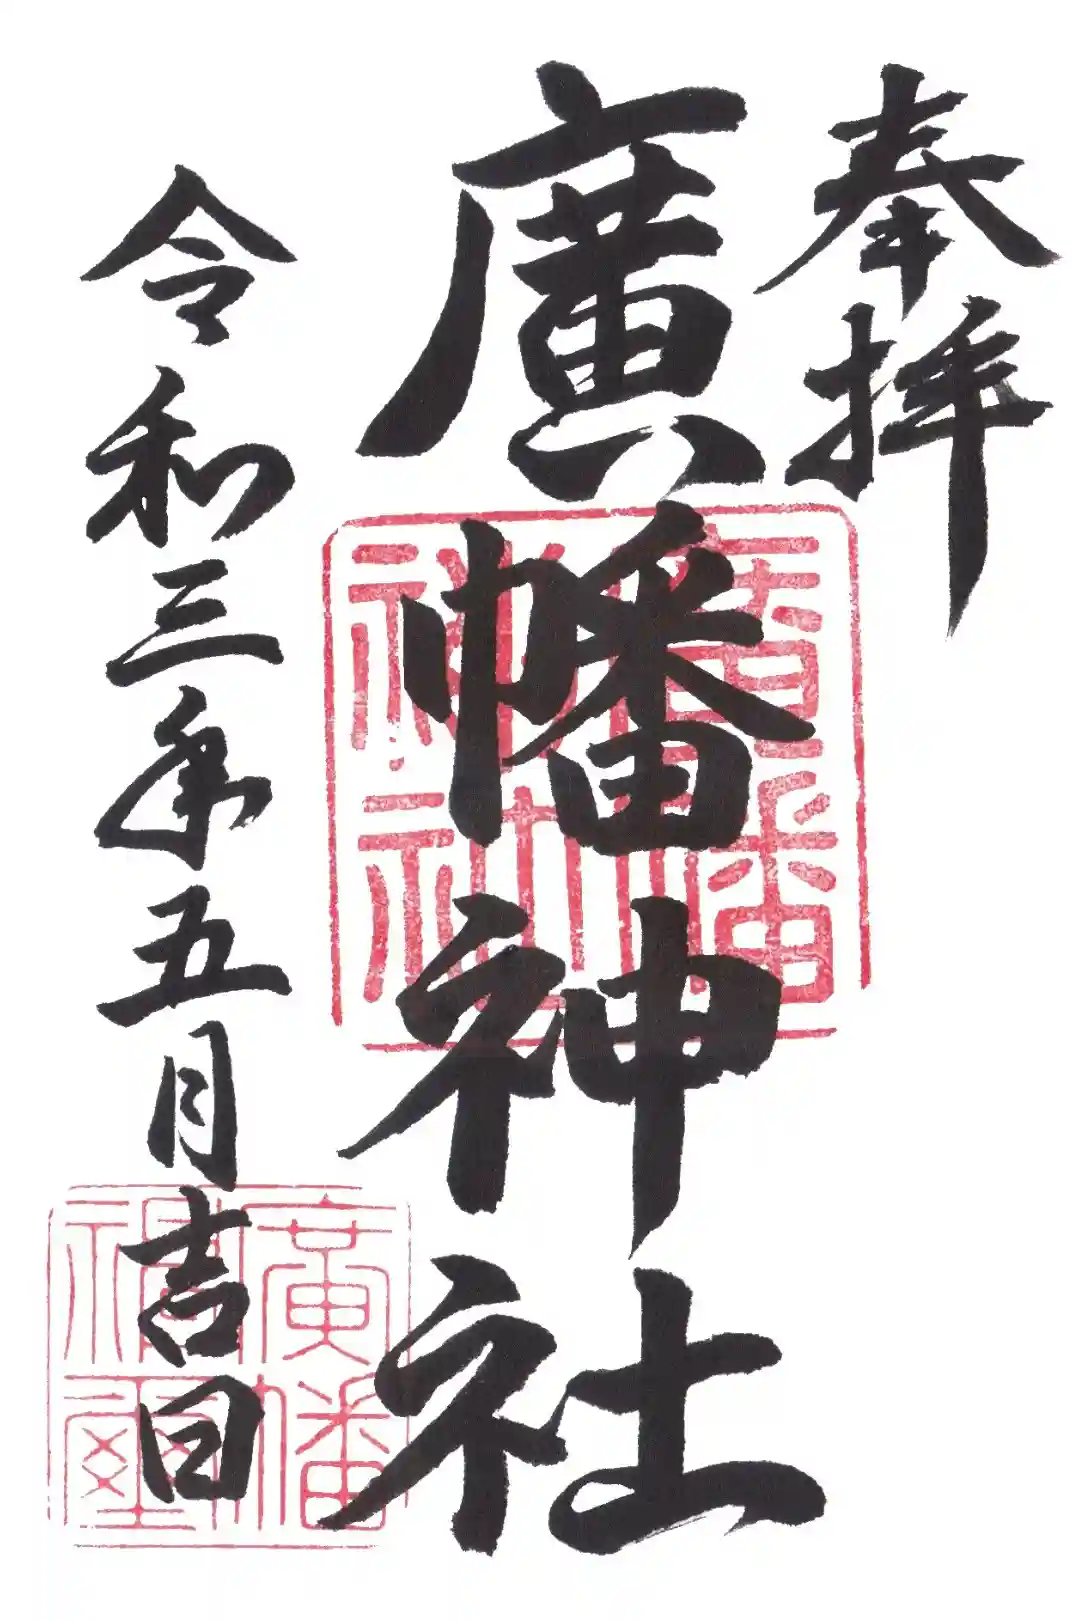 奉拝
廣幡神社
令和三年五月吉日
廣幡
神社
廣幡